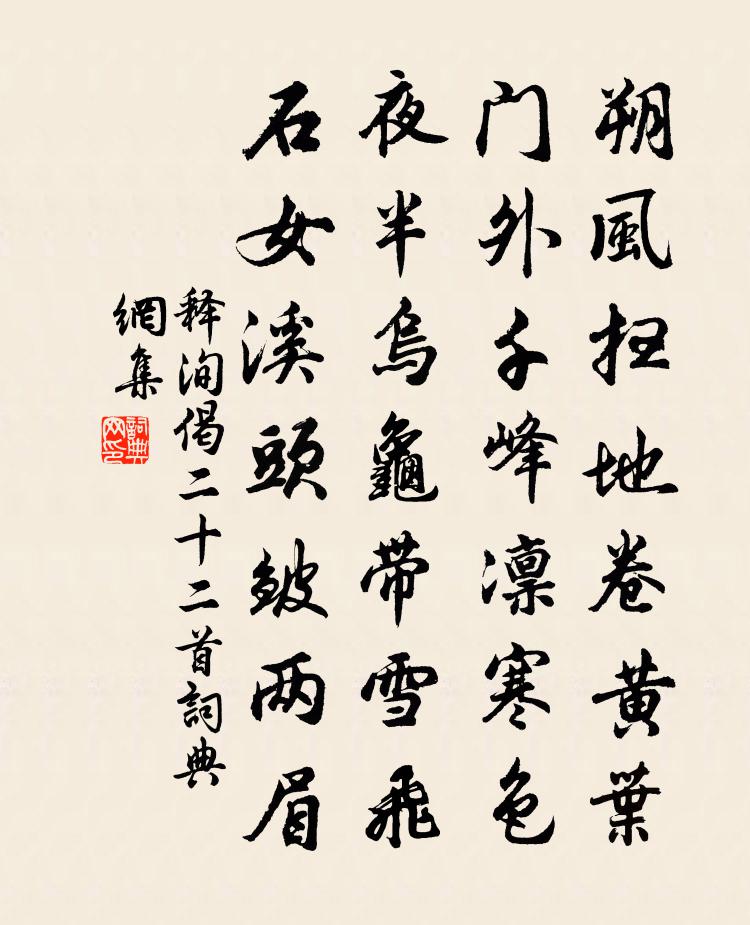 朔風扫地卷黄葉
门外千峰凛寒色
夜半烏龜带雪飛
石女溪頭皴两眉
释洵偈二十二首詞典
網集
詞典
网印